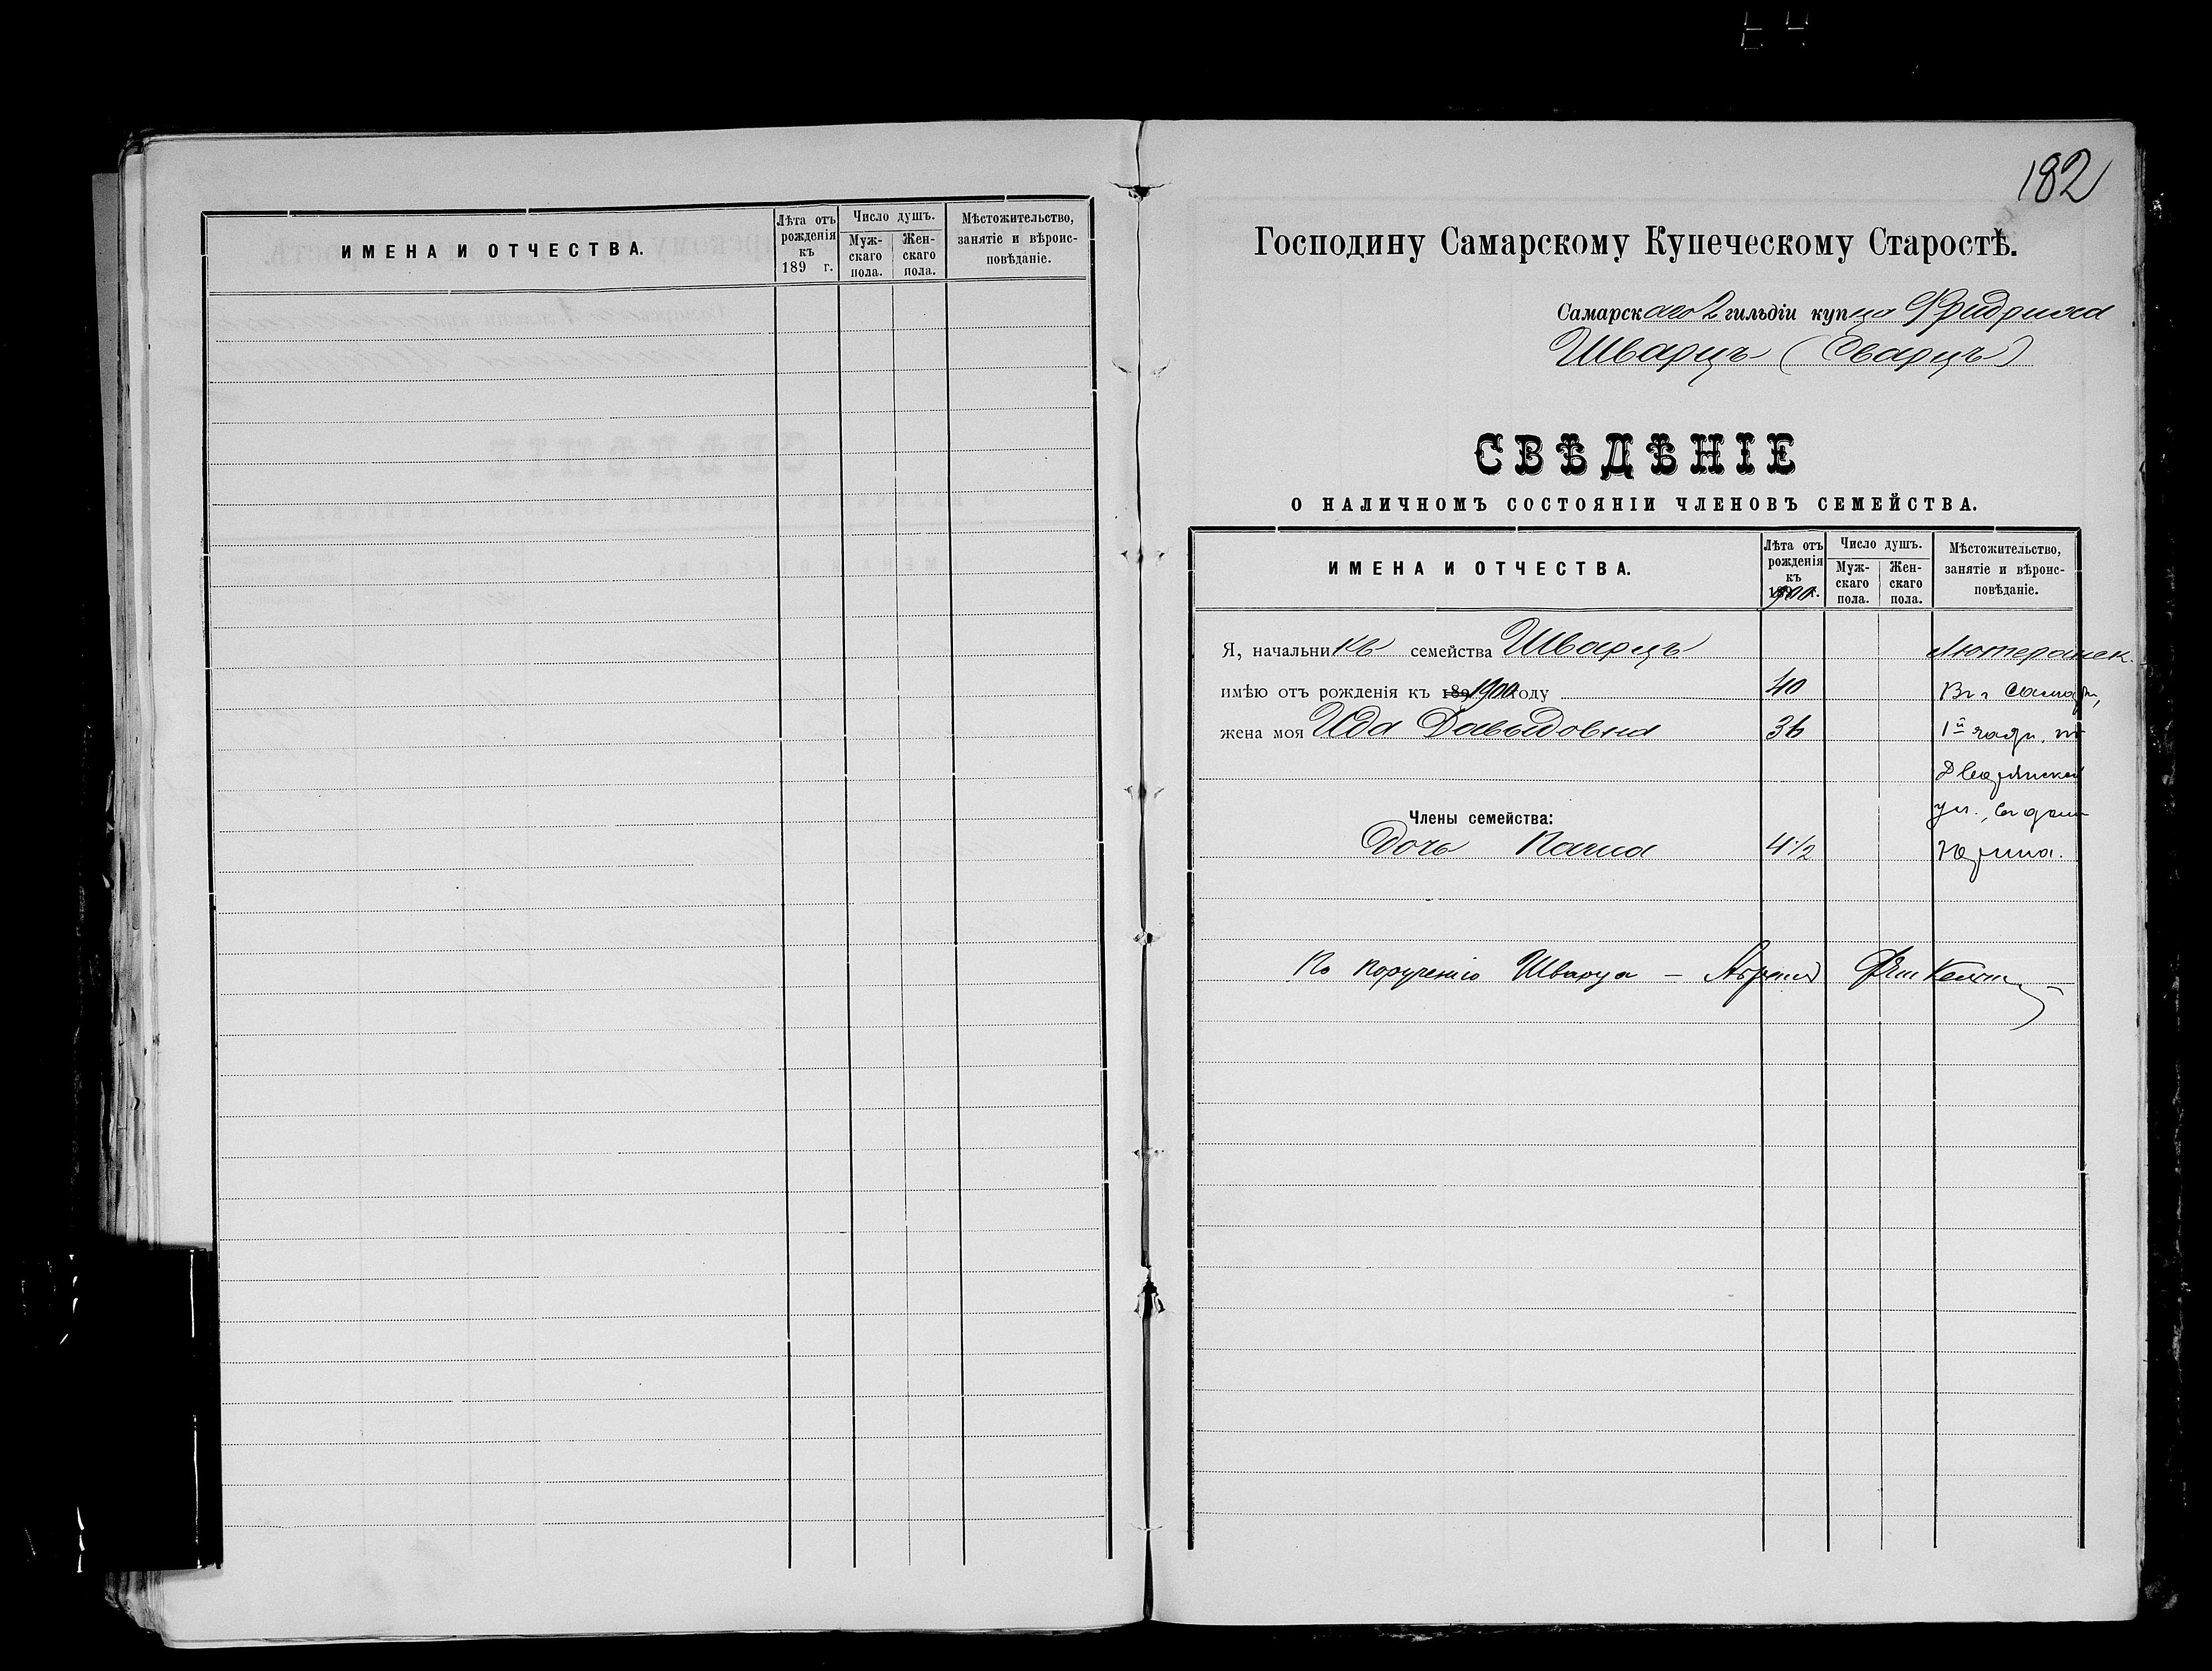 ИМЕНА И ОТЧЕСТВА.
Лѣта отъ рожденія къ 189 г.
Число душъ.
Муж-скаго пола.
Жен-скаго пола.
Мѣстожительство, занятіе и вѣроис-повѣданіе.
182
Господину Самарскому Купеческому Старостѣ.
Самарскаго 2 гильдіи купца Фридриха
Шварцъ (Сварцъ)
СВѢДѢНІЕ
О НАЛИЧНОМЪ СОСТОЯНІИ ЧЛЕНОВЪ СЕМЕЙСТВА.
ИМЕНА И ОТЧЕСТВА.
Лѣта отъ рожденія къ 1900 г.
Число душъ.
Муж-скаго пола.
Жен-скаго пола.
Мѣстожительство, занятіе и вѣроис-повѣданіе.
Я, начальникъ семейства Шварцъ Лютеранск.
имѣю отъ рожденія къ 189 1900 году 40 Въ г. Самарѣ,
жена моя Ида Давыдовна 36 1й части, по
Дворянской
ул., въ домѣ
Члены семейства:
Дочь 4 1/2 Юрина.
По порученію Шварца —